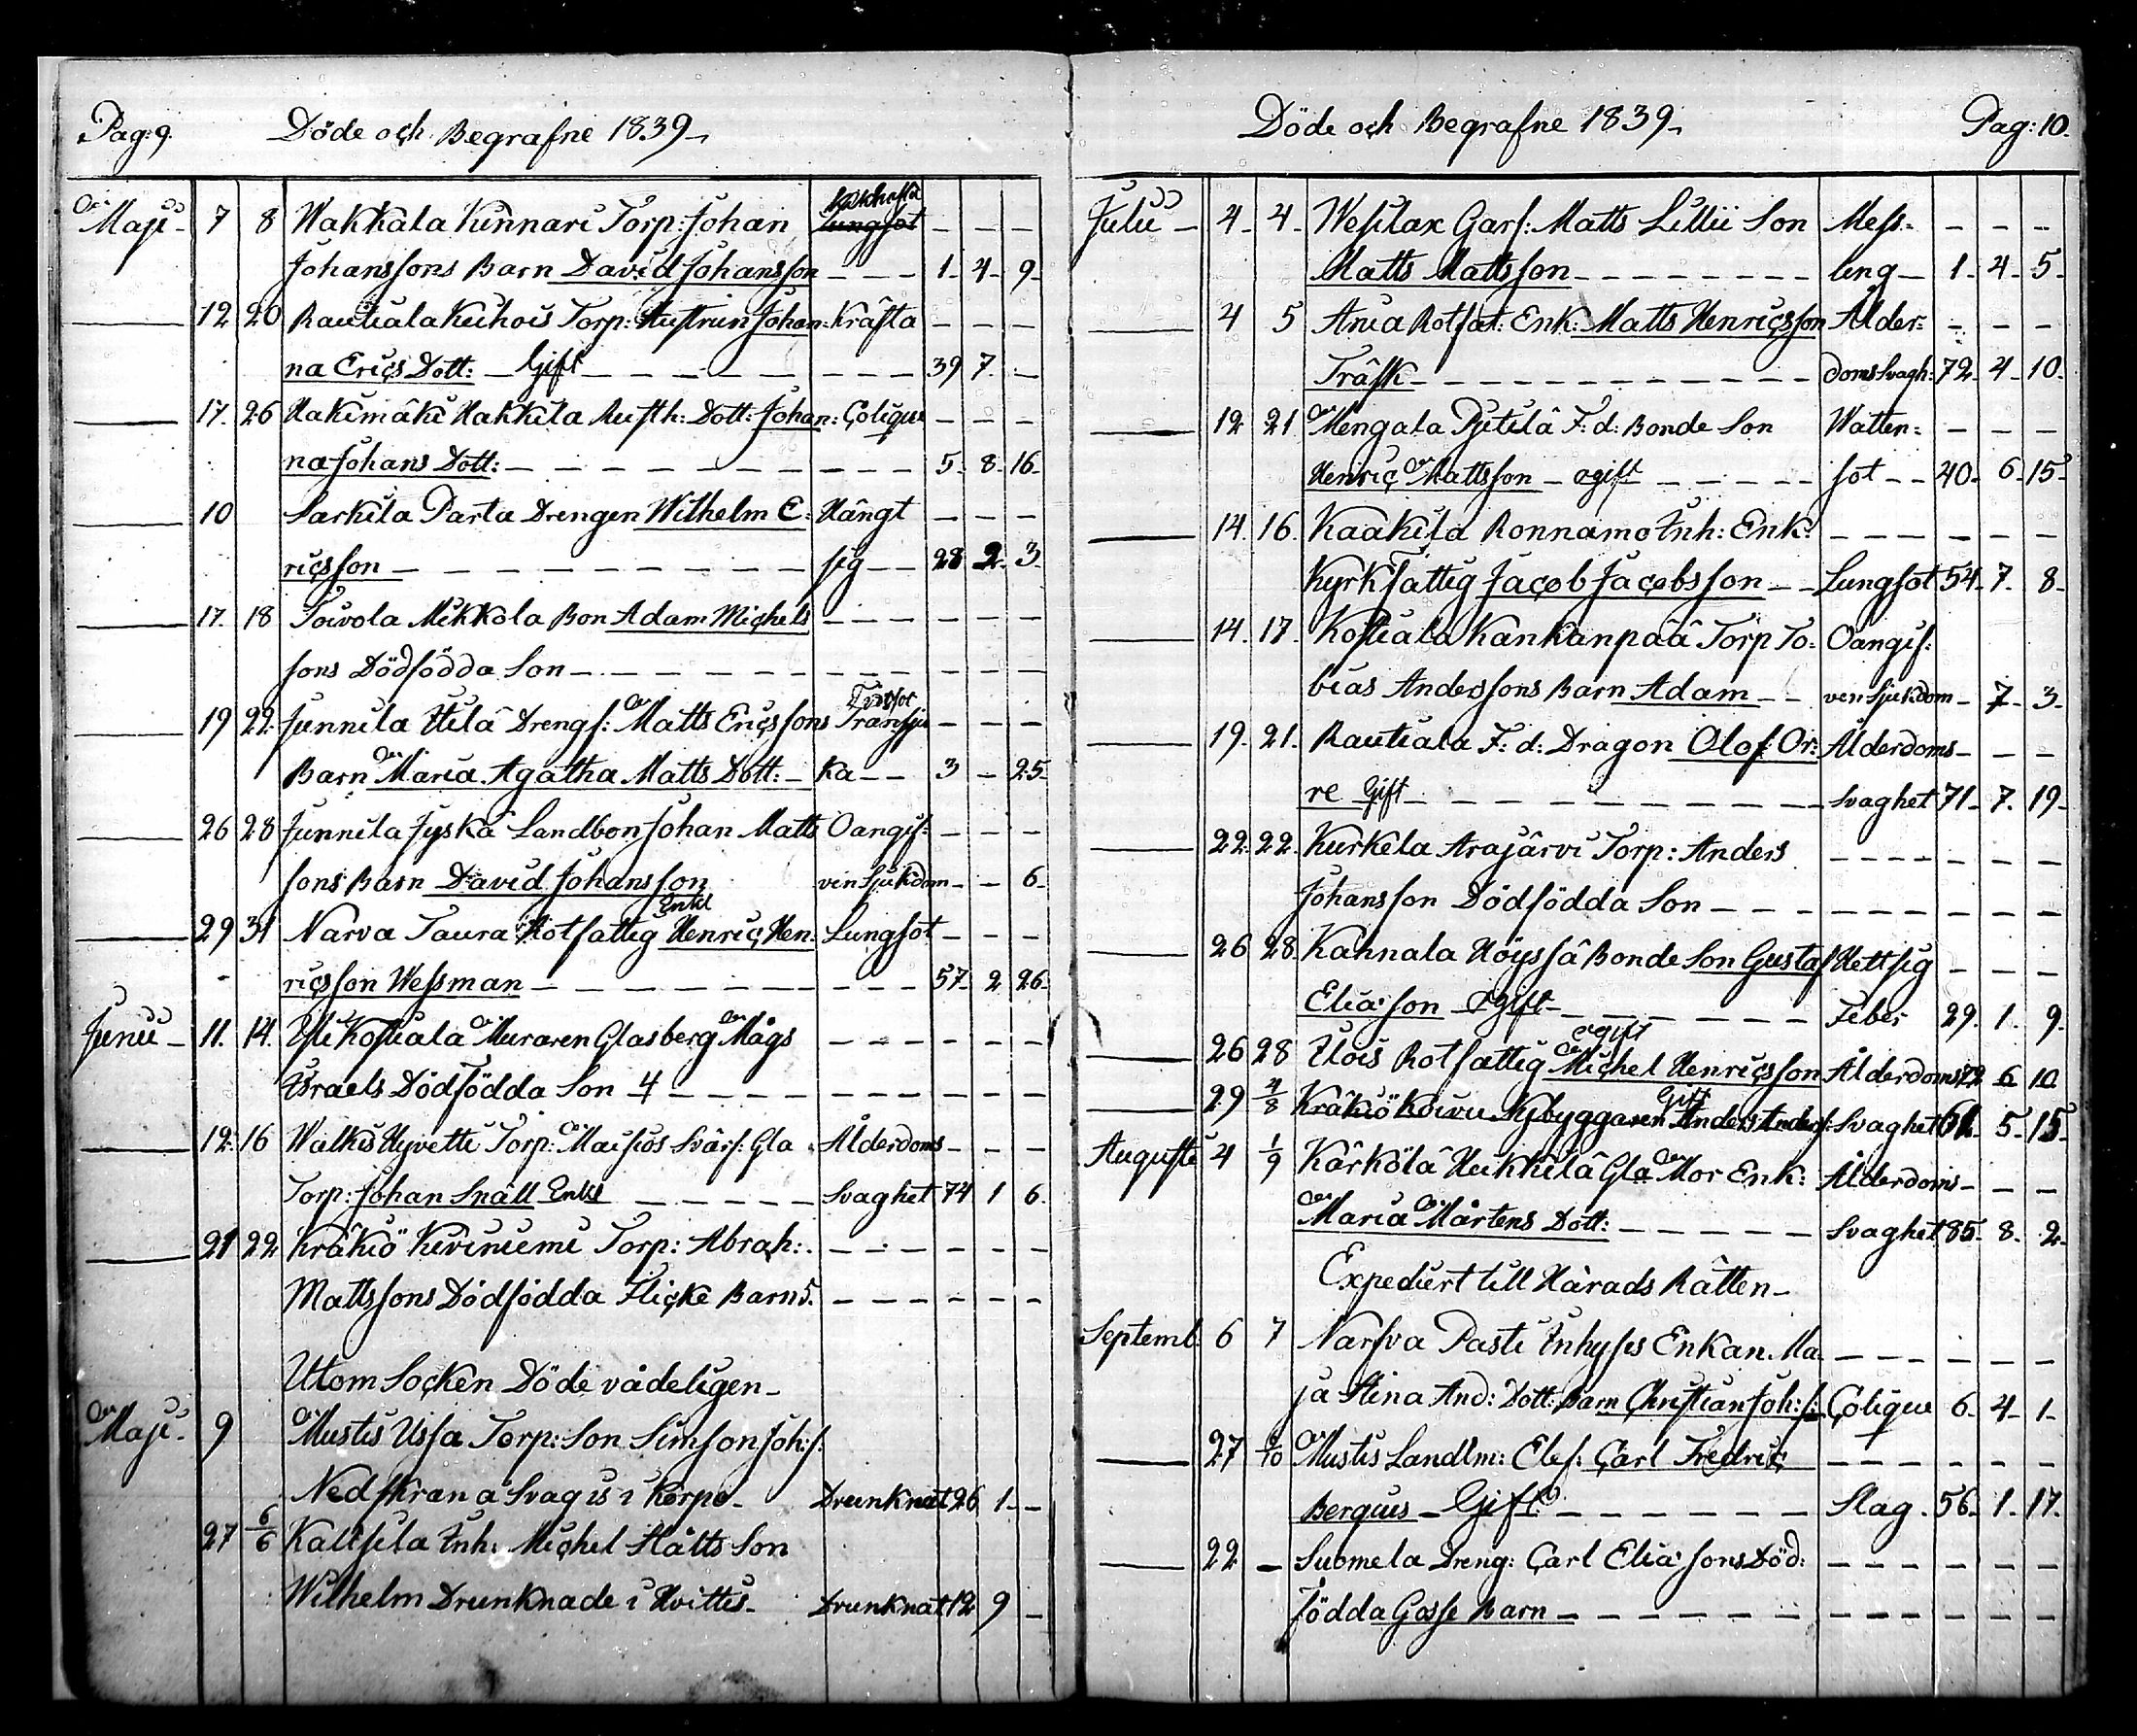 Pag: 9. Döde och Begrafne 1839
Maji 7 8 Wakkala Kinnari Torp: Johan
Johanssons Barn David Johansson 1 4 9
12 20 Rautialakuhois Torp: Hustrun Johan: Kräfta
na Erics Dott: Gift 39 7
17 26 Hakimäki Hakkila Rusth: Dott: Johan: Colique
na Johans Dott: 5 8 16
10 Sarkila Parta Drengen Wilhelm E: Hängt
ricsson sig 28 2 3
17 18 Toivola Mikkola Bon Adam Michels
sons Dödfödda Son
19 22 Junnila Uilä Drengs: Matts Ericssons Transju
Barn Maria Agatha Matts Dott: ka 3 25
26 28 Junnila Jyskä Landbon Johan Matts Oangif:
sons Barn David Johansson ven Sjukdom 6
Enkl
29 31 Narva Taura Rotfattig Henric Hen: Lungsot
ricsson Wessman 57 2 26
Junii 11 14 Yli Kostiala Muraren Glasberg Mågs
Israels Dödfödda Son 4
12 16 Walkis Hyvetti Torp: Maisios Svärf: Gla Ålderdoms
Torp: Johan Snäll Enkl Svaghet 74 1 6
21 22 Kräkiö Kiviniemi Torp: Abrah:
Mattssons Dödfödda Flicke Barn 5.
Utom Socken Döde vådeligen
Maji 9 Mustis Ussa Torp: Son Simson Joh: s.
Ned skran a Svag is i Korpo Drunknat 26 1
27 6/6 Kaltsila Inh: Michel Slätts Son
Wilhelm Drunknade i Hvittis Drunknat 12 9
Döde och Begrafne 1839 Pag: 10.
Julii 4 4 Wesilax Garf: Matts Lillii Son Mess:
Matts Mattsson ling 1 4 5
4 5 Ania Rotfat: Enk: Matts Henricsson Ålder:
Träsk doms Svagh: 72 4 10
12 21 Mengala Pytilä F: d: Bonde Son Watten:
Henric Mattsson ogift sot 40 6 15
14 16 Kaakila Ronnamo Inh: Enk:
Kyrkfattig Jacob Jacobsson Lungsot 54 7 8
14 17 Kostiala Kankanpää Torp To: Oangif:
bias Anderssons Barn Adam ven Sjukdom 7 3
19 21 Rautiala F: d: Dragon Olof Or: Ålderdoms
re Gift Svaghet 71 7 19
22 22 Kurkela Arajärvi Torp: Anders
Johansson Dödfödda Son
26 28 Kahnala Höyssä Bonde Son Gustaf Hettsig
Eliasson Ogift Feber 29 1 9
ogift
26 28 Ulois Rotfattig Michel Henricsson Ålderdoms 72 6 10
Gift
29 4/8 Kräkiö Koivu Nybyggaren Anders Anders: Svaghet 61 5 15
Augusti 4 1/9 Kärkölä Heikkilä Gla Mor Enk: Ålderdoms
Maria Mårtens Dott: Svaghet 85 8 2
Expediert till Härads Rätten
Septemb. 6 7 Narfva Pasti Inhyses Enkan Ma
ja Stina And: Dott: Barn Christian Joh: s: Colique 6 4 1
27 Mustis Landtm: Elef: Carl Fredric
Bergius Gift Slag 56 1 17
22 Suomela Dreng: Carl Eliassons Död:
födda Gosse Barn